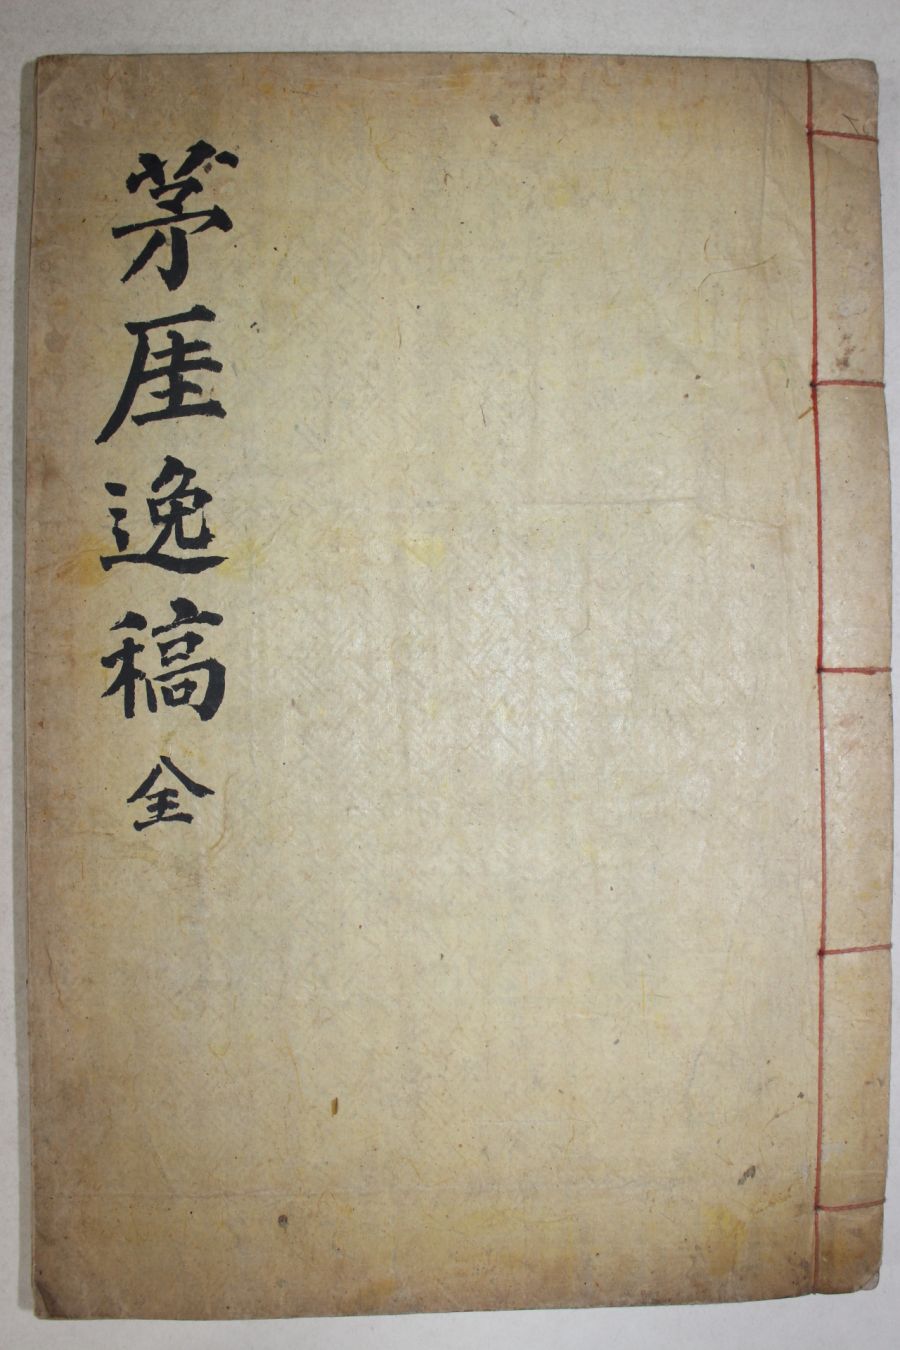 茅厓逸稿 全